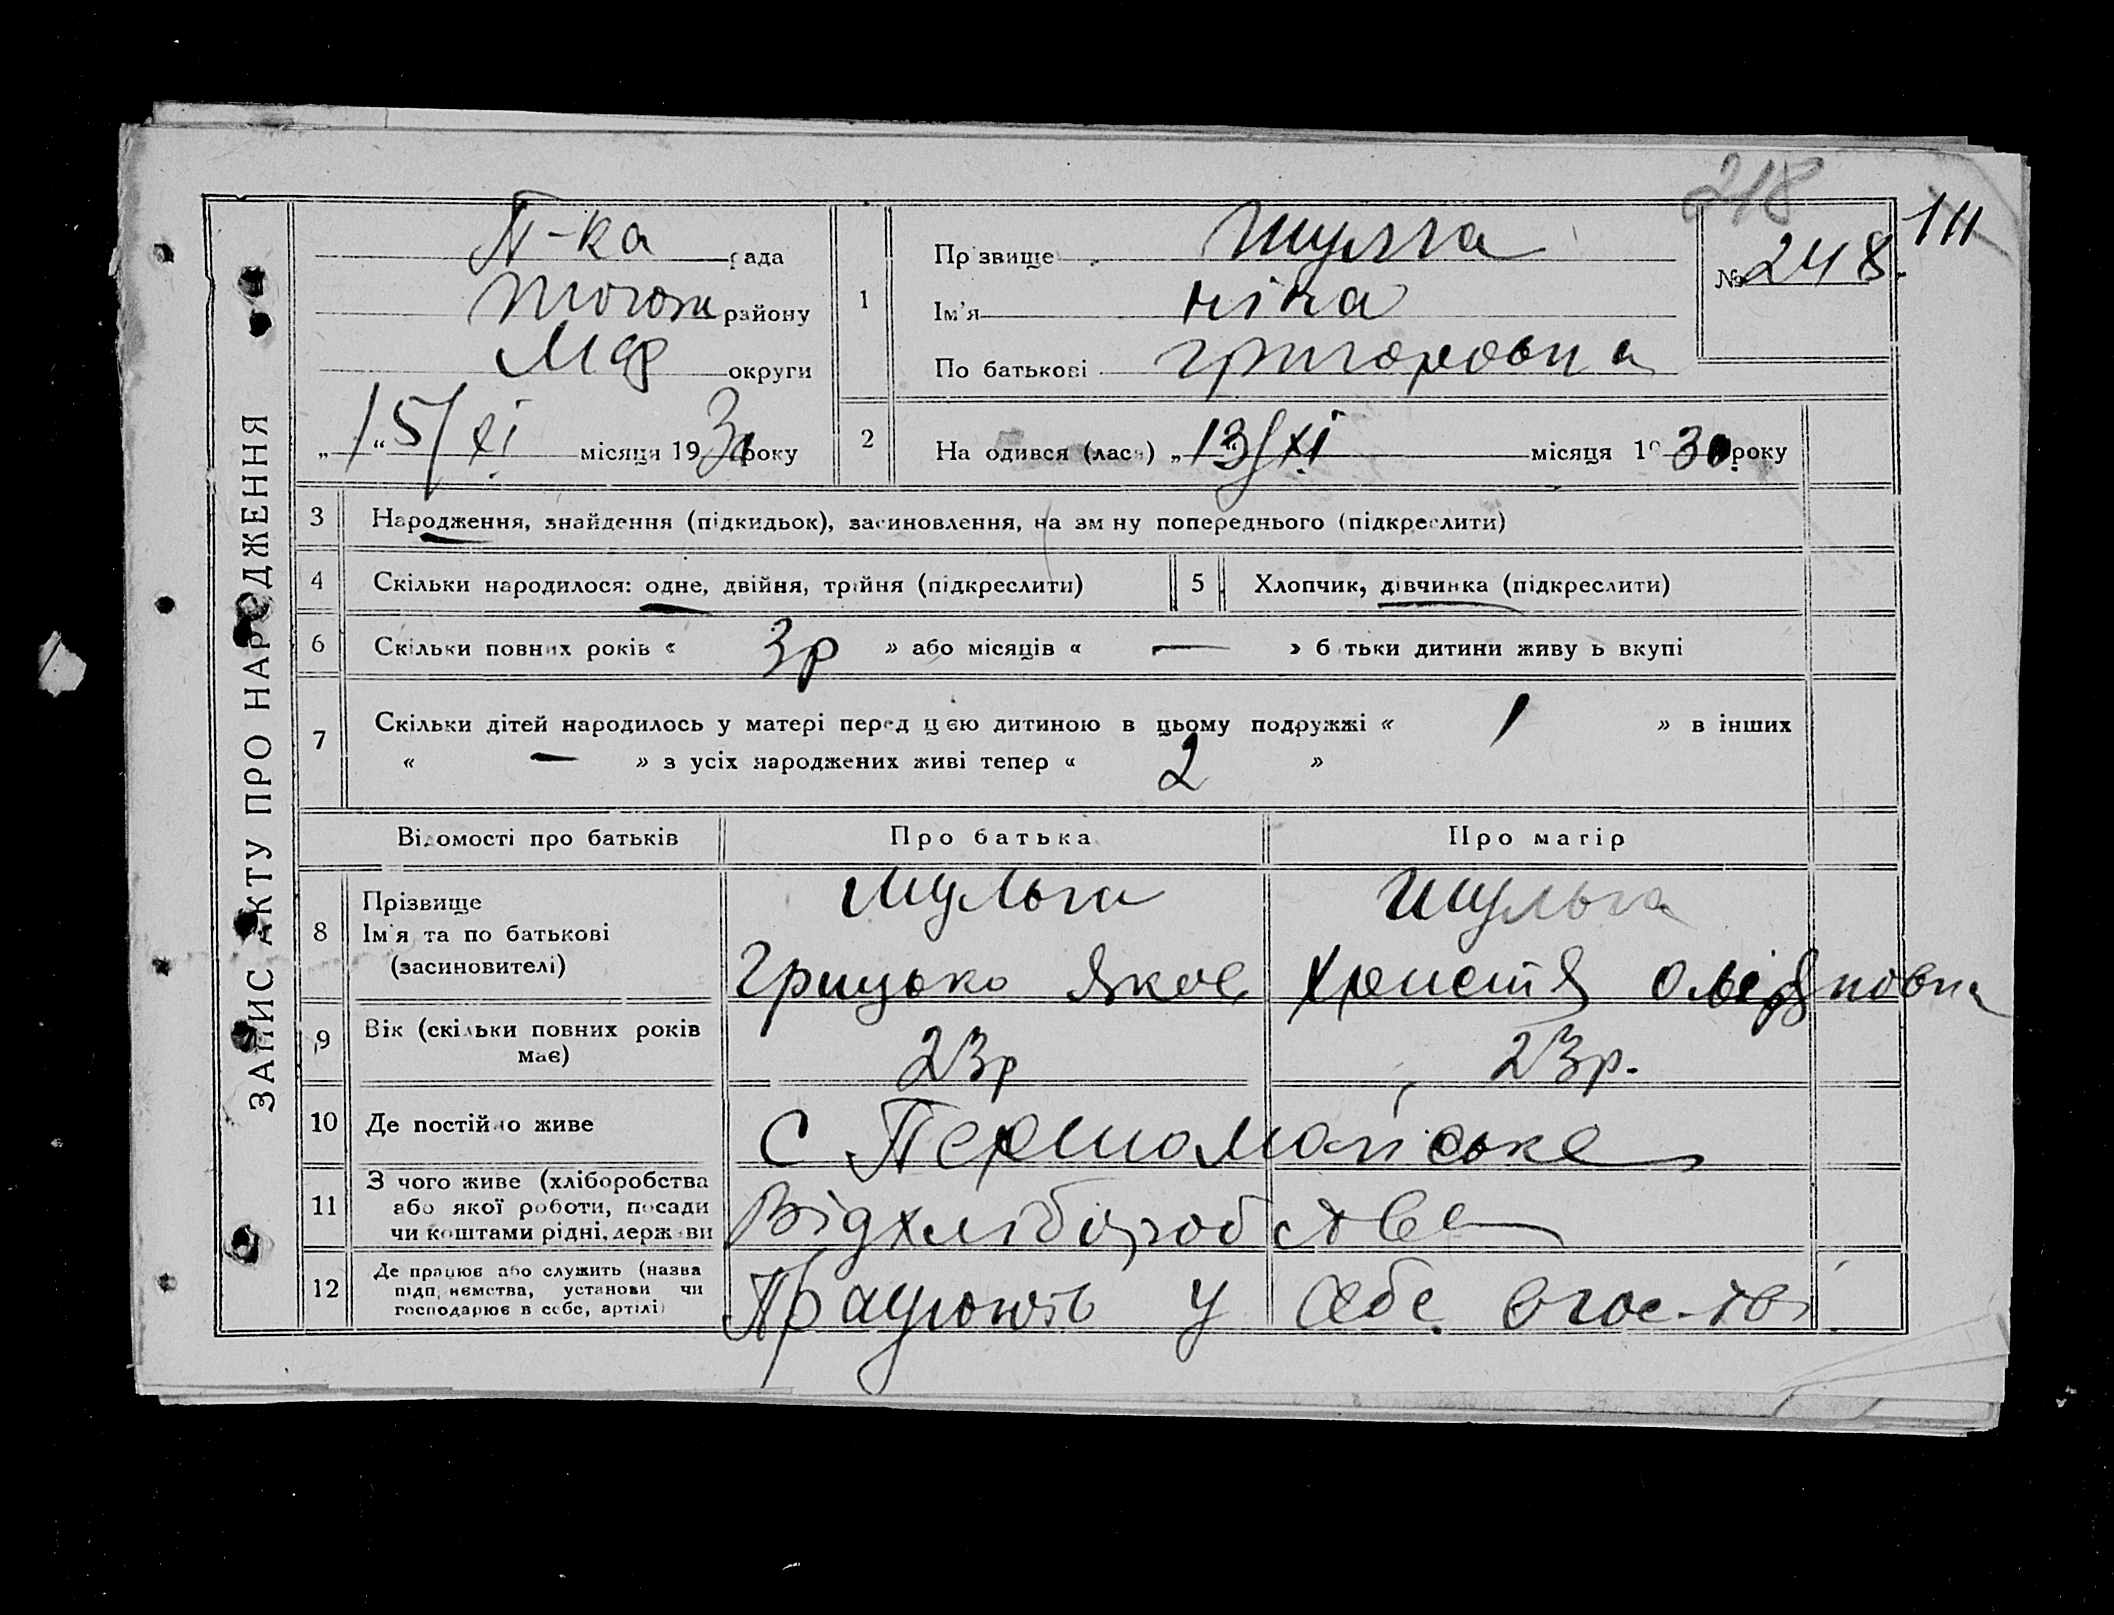 218
111
ЗАПИС АКТУ ПРО НАРОДЖЕННЯ
П-ка рада
району
округи
„15“/XI місяця 1930 року
1
Прізвище Шулга
Ім'я Ніна
По батькові Григоровна
№ 248.
2 Народився (лася) „13/XI місяця 1930 року
3 Народження, знайдення (підкидьок), засиновлення, на зміну попереднього (підкреслити)
4 Скільки народилося: одне, двійня, трійня (підкреслити)
5 Хлопчик, дівчинка (підкреслити)
6 Скільки повних років « 3р » або місяців « — » батьки дитини живуть вкупі
7 Скільки дітей народилось у матері перед цією дитиною в цьому подружжі « 1 » в інших
« — » з усіх народжених живі тепер « 2 »
Відомості про батьків Про батька Про матір
8 Прізвище Шульга Шульга
Ім'я та по батькові
(засиновителі) Грицько Яков. Христя
9 Вік (скільки повних років має) 23р 23р.
10 Де постійно живе с Першомайське
11 З чого живе (хліборобства
або якої роботи, посади
чи коштами рідні, держави
Від хліборобства
12 Де працює або служить (назва
підприємства, установи чи
господарює в себе, артілі)
Працюють у себе